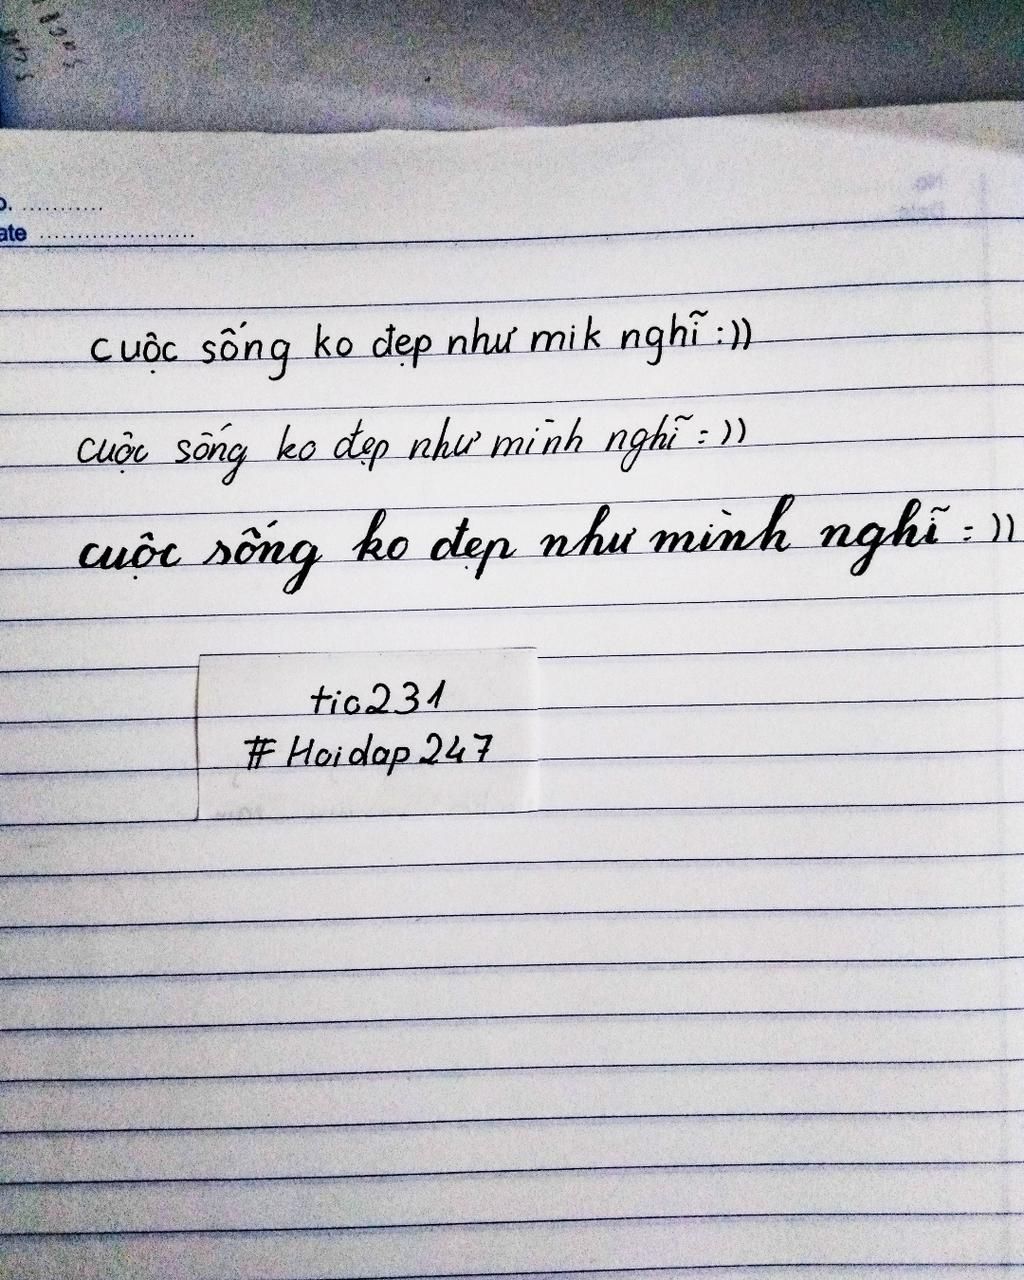 ate
cuộc sống ko đẹp như mik nghĩ :))
cuộc sống ko đẹp như mình nghĩ :))
cuộc sống ko đẹp như mình nghĩ :))
tio231
#Hoidap247